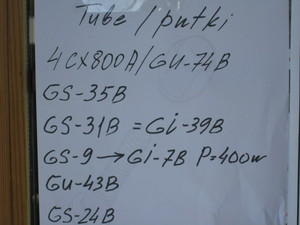 Tube / putki
4CX800A/GU-74B
GS-35B
GS-31B = Gi-39B
GS-9 → Gi-7B P=400w
GU-43B
GS-24B